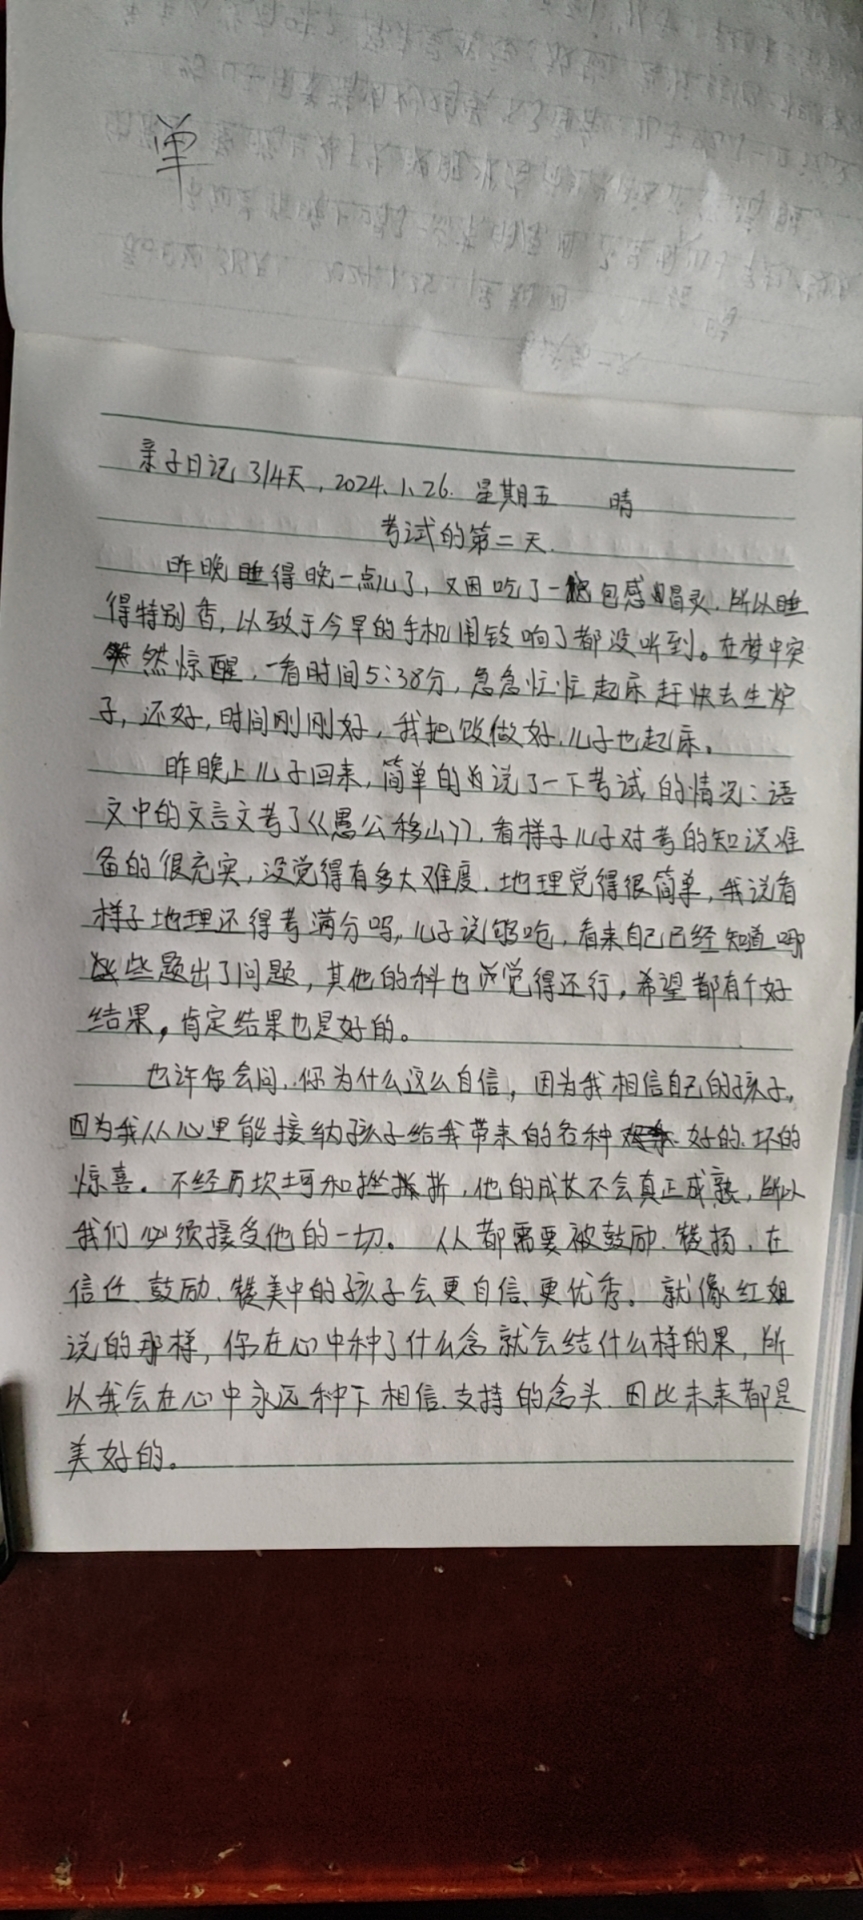 单
亲子日记314天，2024.1.26. 星期五 晴
考试的第二天.
昨晚睡得晚一点儿了，又因吃了一包感冒灵.所以睡
得特别香，以致于今早的手机闹铃响了都没听到。在梦中突
然惊醒，一看时间5:38分，急急忙忙起床赶快去生炉
子，还好，时间刚刚好，我把饭做好.儿子也起床。
昨晚上儿子回来，简单的说了一下考试的情况：语
文中的文言文考了《愚公移山》，看样子儿子对考的知识准
备的很充实，没觉得有多大难度.地理觉得很简单，我说看
样子地理还得考满分吗，儿子说够呛，看来自己已经知道哪
些题出了问题，其他的科也觉得还行，希望都有个好
结果，肯定结果也是好的。
也许你会问.你为什么这么自信，因为我相信自己的孩子。
因为我从心里能接纳孩子给我带来的各种 好的.坏的
惊喜。不经历坎坷和挫折，他的成长不会真正成熟，所以
我们必须接受他的一切。人都需要被鼓励.赞扬，在
信任.鼓励.赞美中的孩子会更自信、更优秀。就像红姐
说的那样，你在心中种了什么念就会结什么样的果，所
以我会在心中永远种下相信.支持的念头.因此未来都是
美好的。